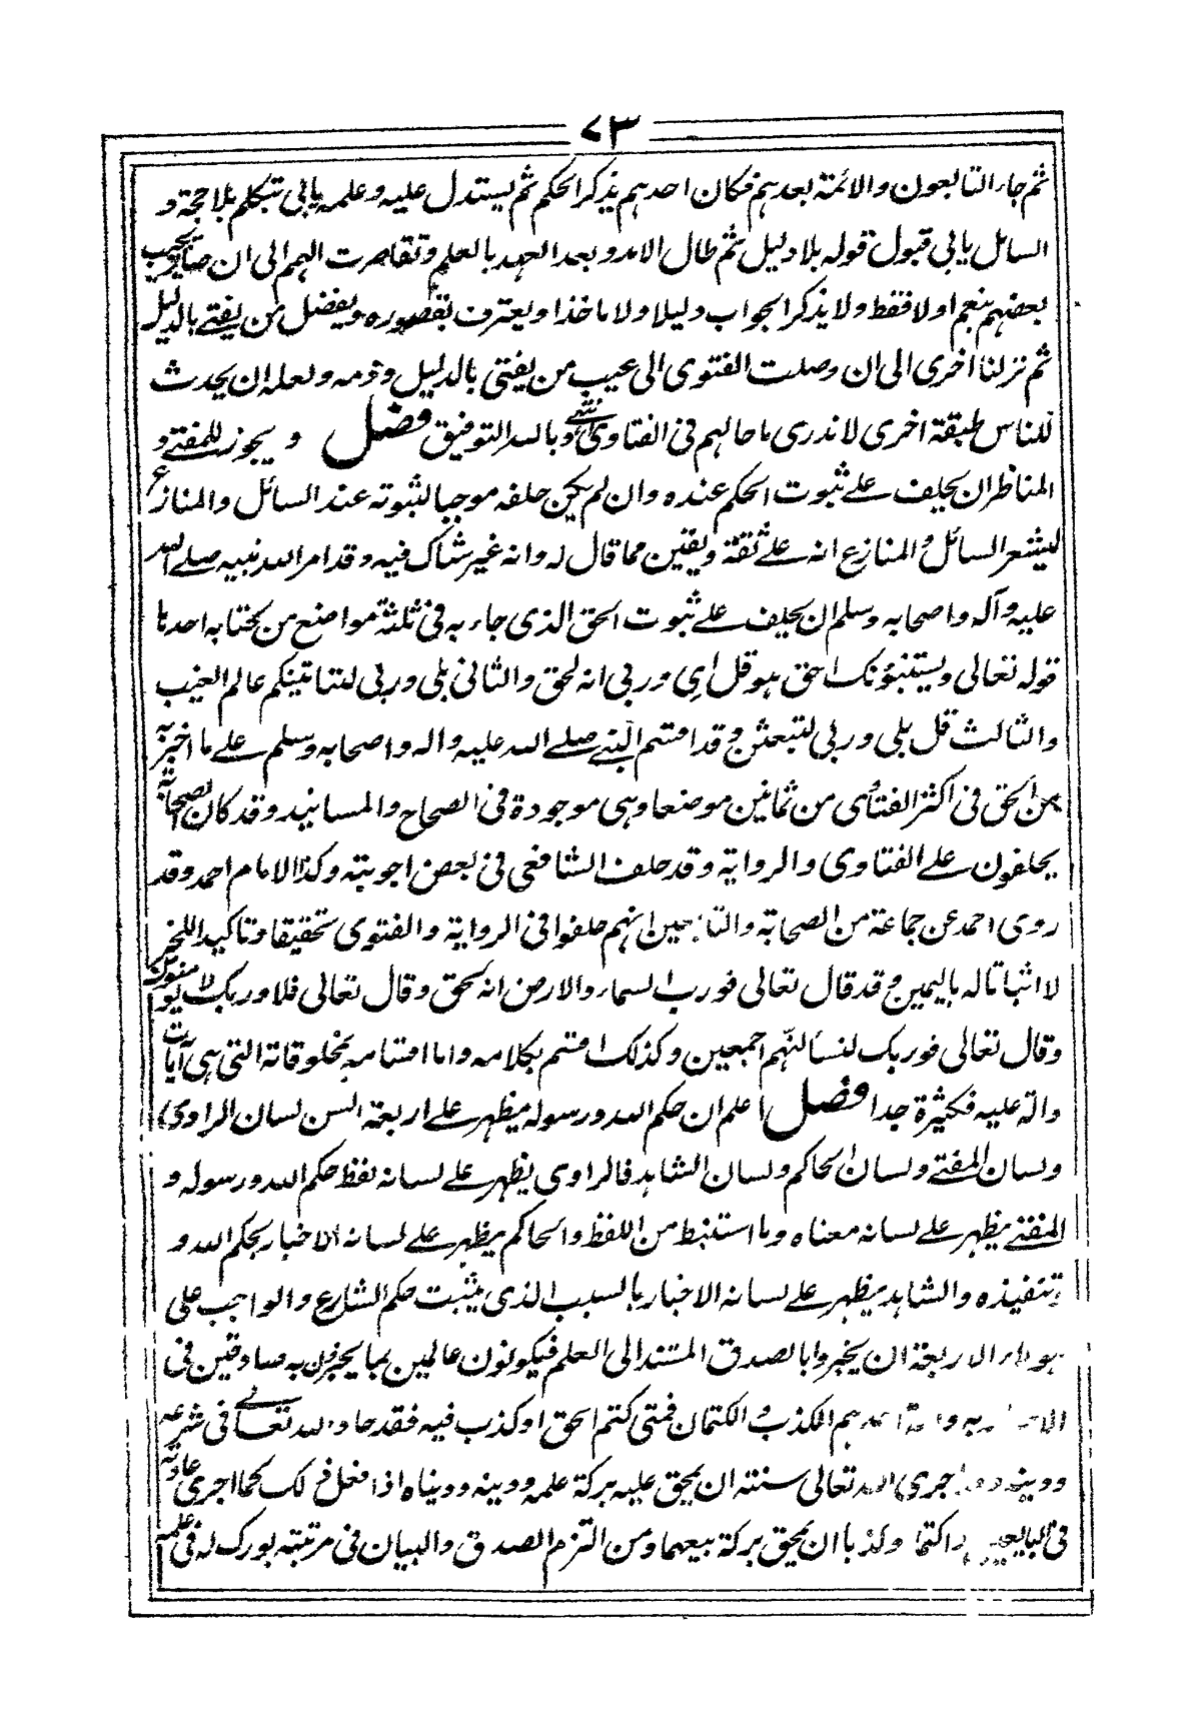 ٧٣
ثم جاء التابعون والائمة بعدهم فكان احدهم يذكر الحكم ثم يستدل عليه وعلمه يابى تتكلم بلا حجة و
السائل يابى قبول قوله بلا دليل ثم طال الامد وبعد العهد بالعلم وتقاصرت الهمم الى ان صار يجيب
بعضهم بنعم او لا فقط ولا يذكر الجواب دليلا ولا ماخذا ويعترف بقصوره ويفضل من يفتے بالدليل
ثم نزلنا اخرى الى ان وصلت الفتوى الى عيب من يفتى بالدليل وذمه ولعله ان يحدث
للناس طبقة اخرى لا ندرى ما حالهم فى الفتاوى وبالله التوفيق فصل و يجوز للمفتے و
المناظر ان يحلف علے ثبوت الحكم عنده وان لم يكن حلفه موجبا لثبوته عند السائل والمنازع
ليشعر السائل والمنازع انه علے ثقة ويقين مما قال له وانه غير شاك فيه وقد امر الله نبيه صلے الله
عليه وآله واصحابه وسلم ان يحلف علے ثبوت الحق الذى جاء به فى ثلثة مواضع من كتابه احدها
قوله تعالى ويستنبؤنك احق هو قل اى وربى انه لحق والثانى بلى وربى لتاتينكم عالم الغيب
والثالث قل بلى وربى لتبعثن وقد اقسم النبے صلے الله عليه واله واصحابه وسلم علے ما اخبر به
من الحق فى اكثر الفتاوى من ثمانين موضعا وهى موجودة فى الصحاح والمسانيد وقد كان الصحابة
يحلفون علے الفتاوى والرواية وقد حلف الشافعى فى بعض اجوبته وكذا الامام احمد وقد
روى احمد عن جماعة من الصحابة والتابعين انهم حلفوا فى الرواية والفتوى تحقيقا وتاكيدا للخبر
لا اثباتا له باليمين وقد قال تعالى فورب السماء والارض انه لحق وقال تعالى فلا وربك لا يؤمنون
وقال تعالى فوربك لنسألنهم اجمعين وكذلك اقسم بكلامه واما اقسامه بمخلوقاته التى هى آيات
دالة عليه فكثيرة جدا فصل اعلم ان حكم الله ورسوله يظهر علے اربعة السن لسان الراوى
ولسان المفتے ولسان الحاكم ولسان الشاهد فالراوى يظهر علے لسانه لفظ حكم الله ورسوله و
المفتے يظهر علے لسانه معناه وما استنبط من اللفظ والحاكم يظهر علے لسانه الاخبار بحكم الله و
تنفيذه والشاهد يظهر علے لسانه الاخبار بالسبب الذى يثبت حكم الشارع والواجب على
هولاء الاربعة ان يخبروا بالصدق المستند الى العلم فيكونون عالمين بما يخبرون به صادقين فى
الاخبار به هم الكذب والكتمان فمتى كتم الحق او كذب فيه فقد حاد الله تعالے فى شرعه
ودينه وقد اجرى الله تعالى سنته ان يمحق عليه بركة علمه ودينه ودنياه اذا فعل ذلك كما اجرى عادته
فى البايعين اذا كتما وكذبا ان يمحق بركة بيعهما ومن التزم الصدق والبيان فى مرتبته بورك له فى علمه